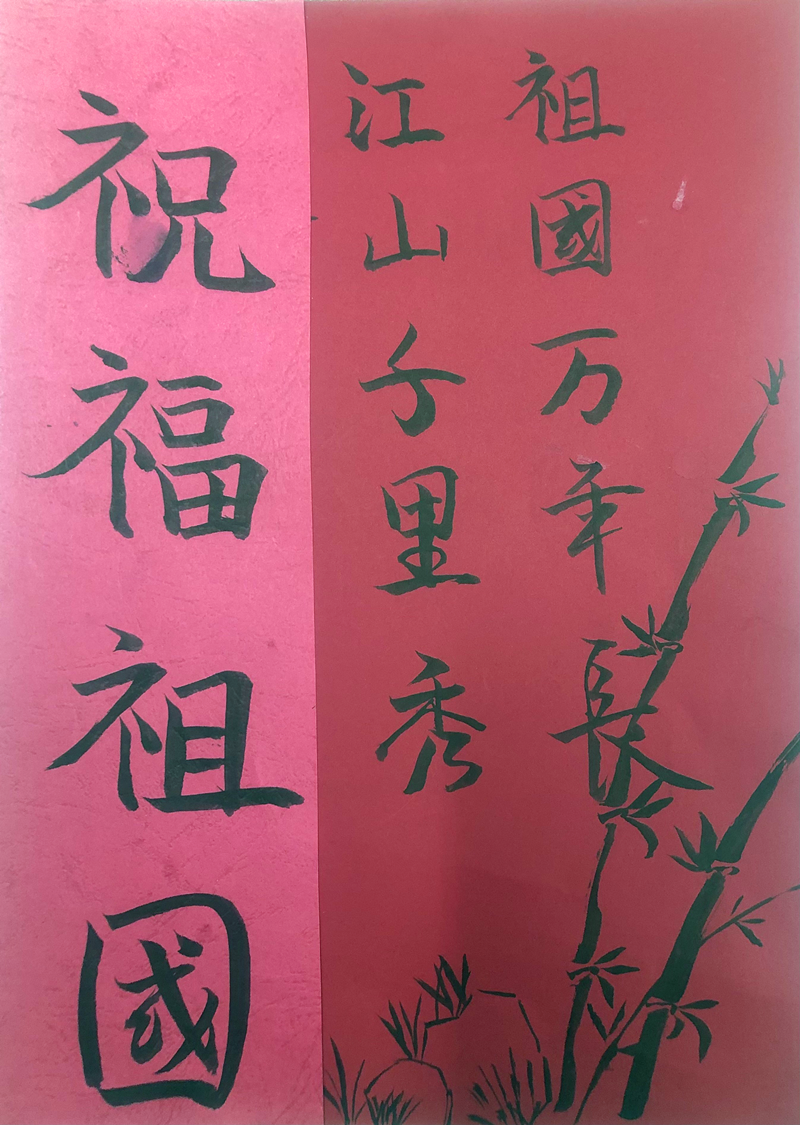 祖國万年長
江山千里秀
祝福祖國